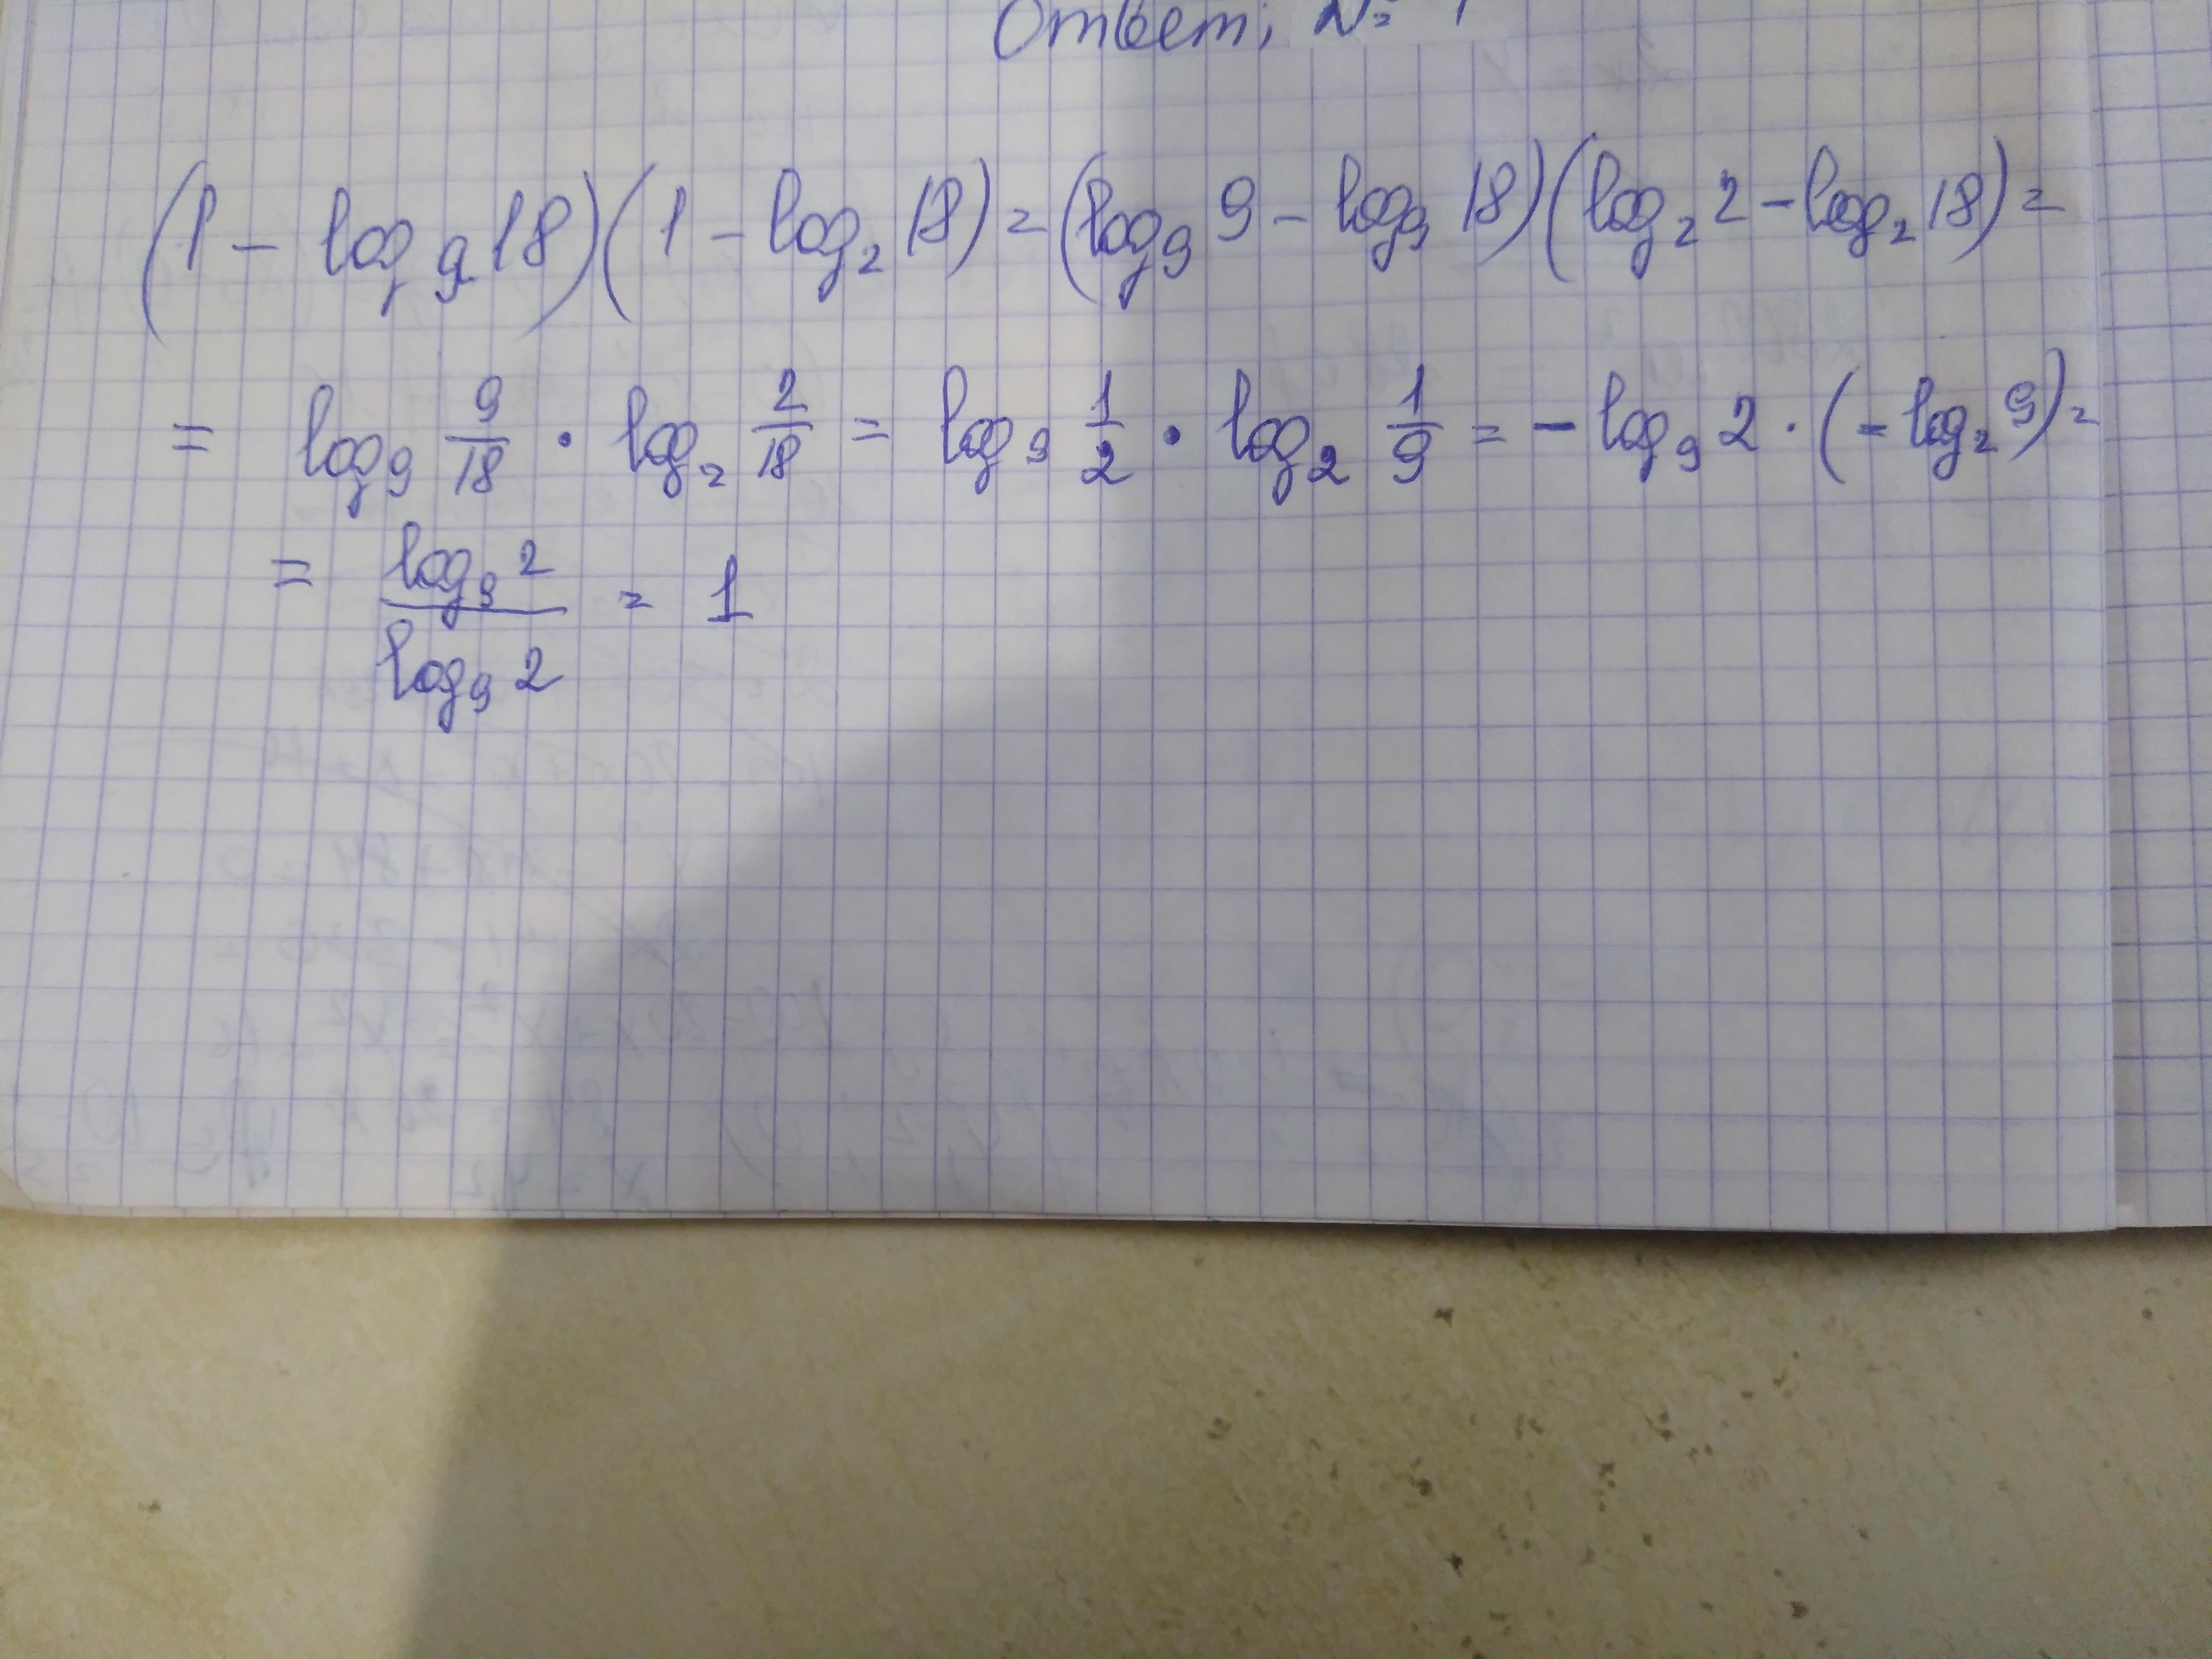 Ответ; №
(1 - log₉ 18)(1 - log₂ 18) = (log₉ 9 - log₉ 18)(log₂ 2 - log₂ 18) =
= log₉ 9/18 · log₂ 2/18 = log₉ 1/2 · log₂ 1/9 = - log₉ 2 · (- log₂ 9) =
= log₉ 2 / log₉ 2 = 1